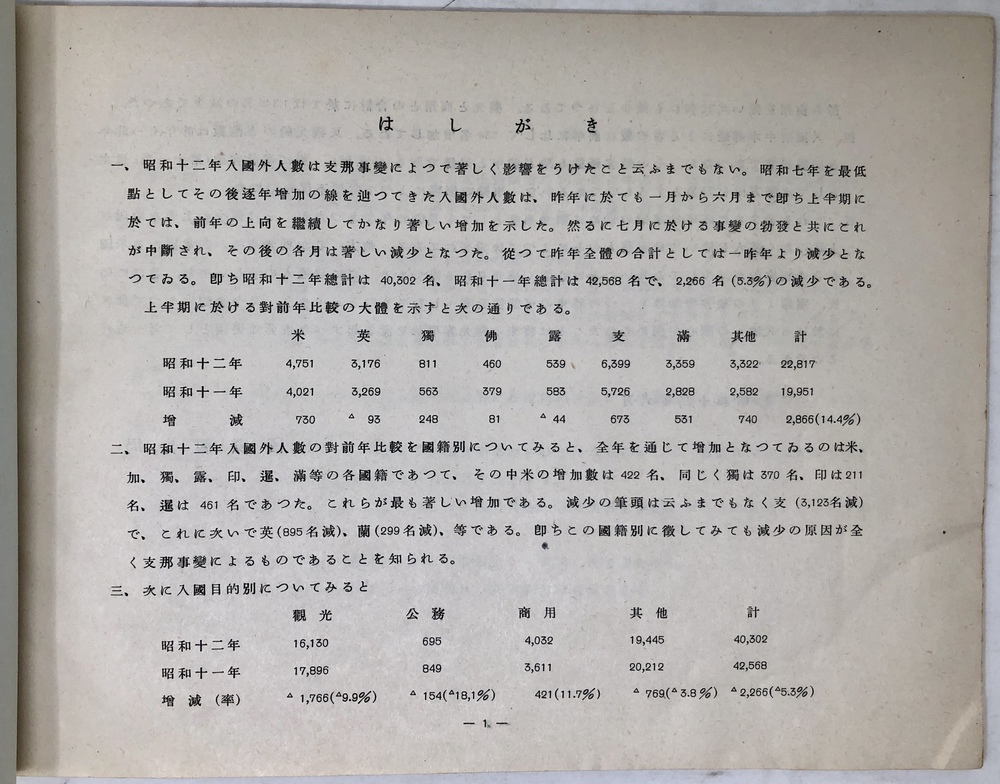 はしがき
一、昭和十二年入國外人數は支那事變によつて著しく影響をうけたこと云ふまでもない。昭和七年を最低
點としてその後逐年增加の線を辿つてきた入國外人數は、昨年に於ても一月から六月まで卽ち上半期に
於ては、前年の上向を繼續してかなり著しい增加を示した。然るに七月に於ける事變の勃發と共にこれ
が中斷され、その後の各月は著しい減少となつた。從つて昨年全體の合計としては一昨年より減少とな
つてゐる。卽ち昭和十二年總計は 40,302 名、昭和十一年總計は 42,568 名で、2,266 名 (5.3%) の減少である。
上半期に於ける對前年比較の大體を示すと次の通りである。
米 英 獨 佛 露 支 滿 其他 計
昭和十二年 4,751 3,176 811 460 539 6,399 3,359 3,322 22,817
昭和十一年 4,021 3,269 563 379 583 5,726 2,828 2,582 19,951
增減 730 △ 93 248 81 △ 44 673 531 740 2,866(14.4%)
二、昭和十二年入國外人數の對前年比較を國籍別についてみると、全年を通じて增加となつてゐるのは米、
加、獨、露、印、暹、滿等の各國籍であつて、その中米の增加數は 422 名、同じく獨は 370 名、印は 211
名、暹は 461 名であつた。これらが最も著しい增加である。減少の筆頭は云ふまでもなく支 (3,123名減)
で、これに次いで英(895名減)、蘭(299名減)、等である。卽ちこの國籍別に徵してみても減少の原因が全
く支那事變によるものであることを知られる。
三、次に入國目的別についてみると
觀光 公務 商用 其他 計
昭和十二年 16,130 695 4,032 19,445 40,302
昭和十一年 17,896 849 3,611 20,212 42,568
增減 (率) △ 1,766(△9.9%) △ 154(△18,1%) 421(11.7%) △ 769(△3.8%) △2,266(△5.3%)
— 1 —